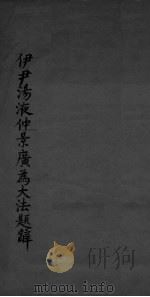 伊尹湯液仲景廣為大法題辭
研狗
mtoou.info